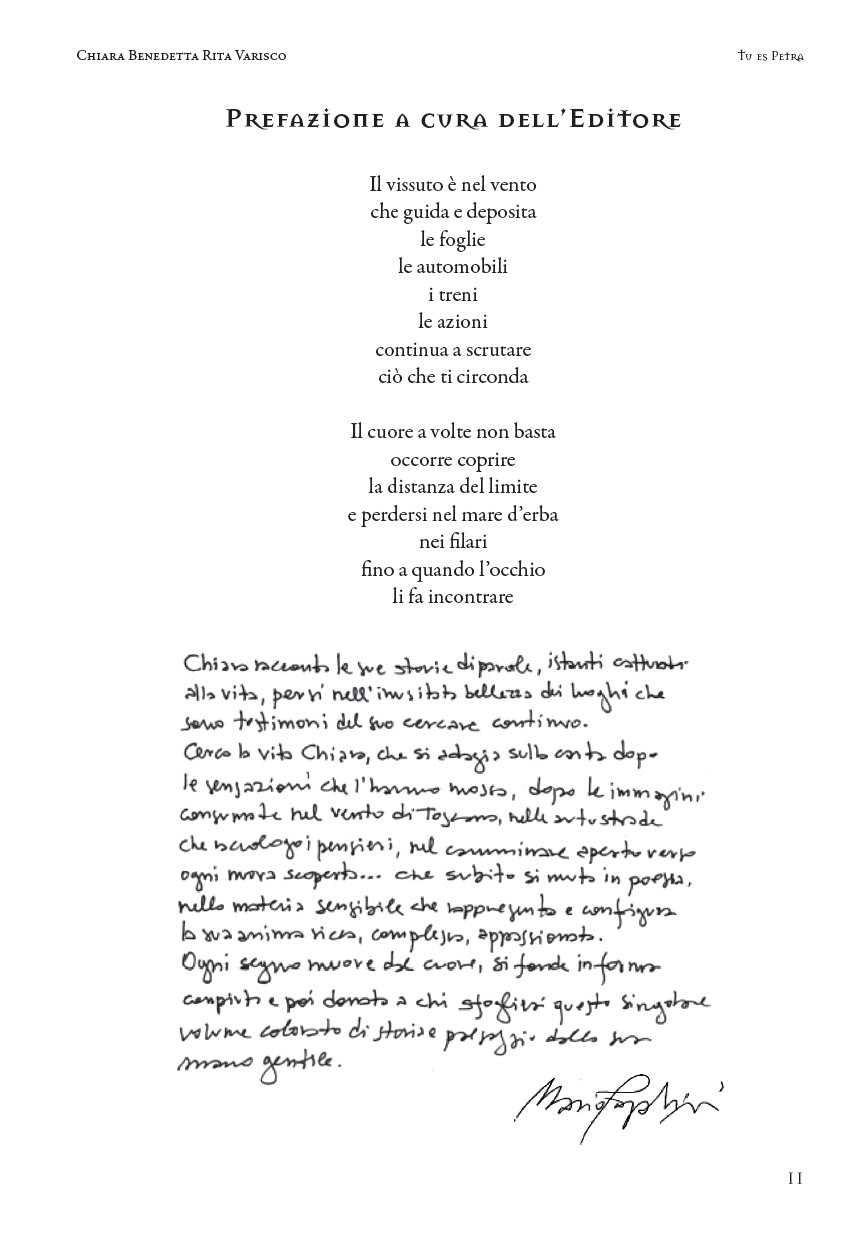 Chiara Benedetta Rita Varisco
Tu es Petra
Prefazione a cura dell'Editore
Il vissuto è nel vento
che guida e deposita
le foglie
le automobili
i treni
le azioni
continua a scrutare
ciò che ti circonda
Il cuore a volte non basta
occorre coprire
la distanza del limite
e perdersi nel mare d'erba
nei filari
fino a quando l'occhio
li fa incontrare
Chiara racconta le sue storie di parole, istanti catturati
alla vita, persi nell'inusitata bellezza dei luoghi che
sono testimoni del suo cercare continuo.
Cerca la vita Chiara, che si adagia sulla carta dopo
le sensazioni che l'hanno mossa, dopo le immagini
consumate nel vento di Toscana, nelle autostrade
che i pensieri, nel camminare aperto verso
ogni nuova scoperta... che subito si muta in poesia,
nella materia sensibile che rappresenta e configura
la sua anima ricca, complessa, appassionata.
Ogni segno muove dal cuore, si fonde in forma
compiuta e poi donata a chi sfoglierà questo singolare
volume colorato di storia e dalla sua
mano gentile.
11